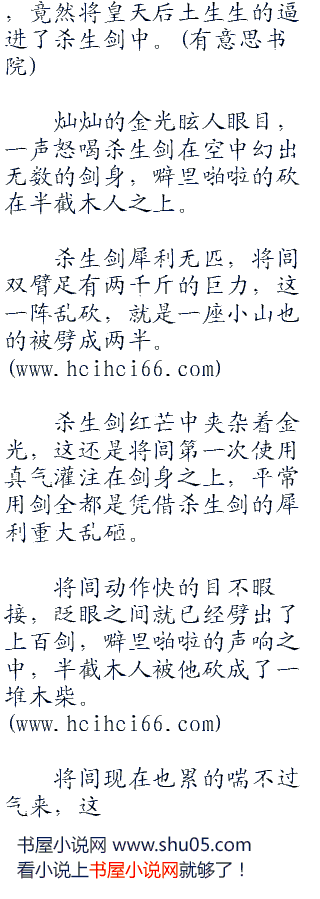 ，竟然将皇天后土生生的逼
进了杀生剑中。(有意思书
院)
灿灿的金光眩人眼目，
一声怒喝杀生剑在空中幻出
无数的剑身，噼里啪啦的砍
在半截木人之上。
杀生剑犀利无匹，将闾
双臂足有两千斤的巨力，这
一阵乱砍，就是一座小山也
的被劈成两半。
(www.hcihci66.com)
杀生剑红芒中夹杂着金
光，这还是将闾第一次使用
真气灌注在剑身之上，平常
用剑全都是凭借杀生剑的犀
利重大乱砸。
将闾动作快的目不暇
接，眨眼之间就已经劈出了
上百剑，噼里啪啦的声响之
中，半截木人被他砍成了一
堆木柴。
(www.hcihci66.com)
将闾现在也累的喘不过
气来，这
书屋小说网 www.shu05.com
看小说上书屋小说网就够了！